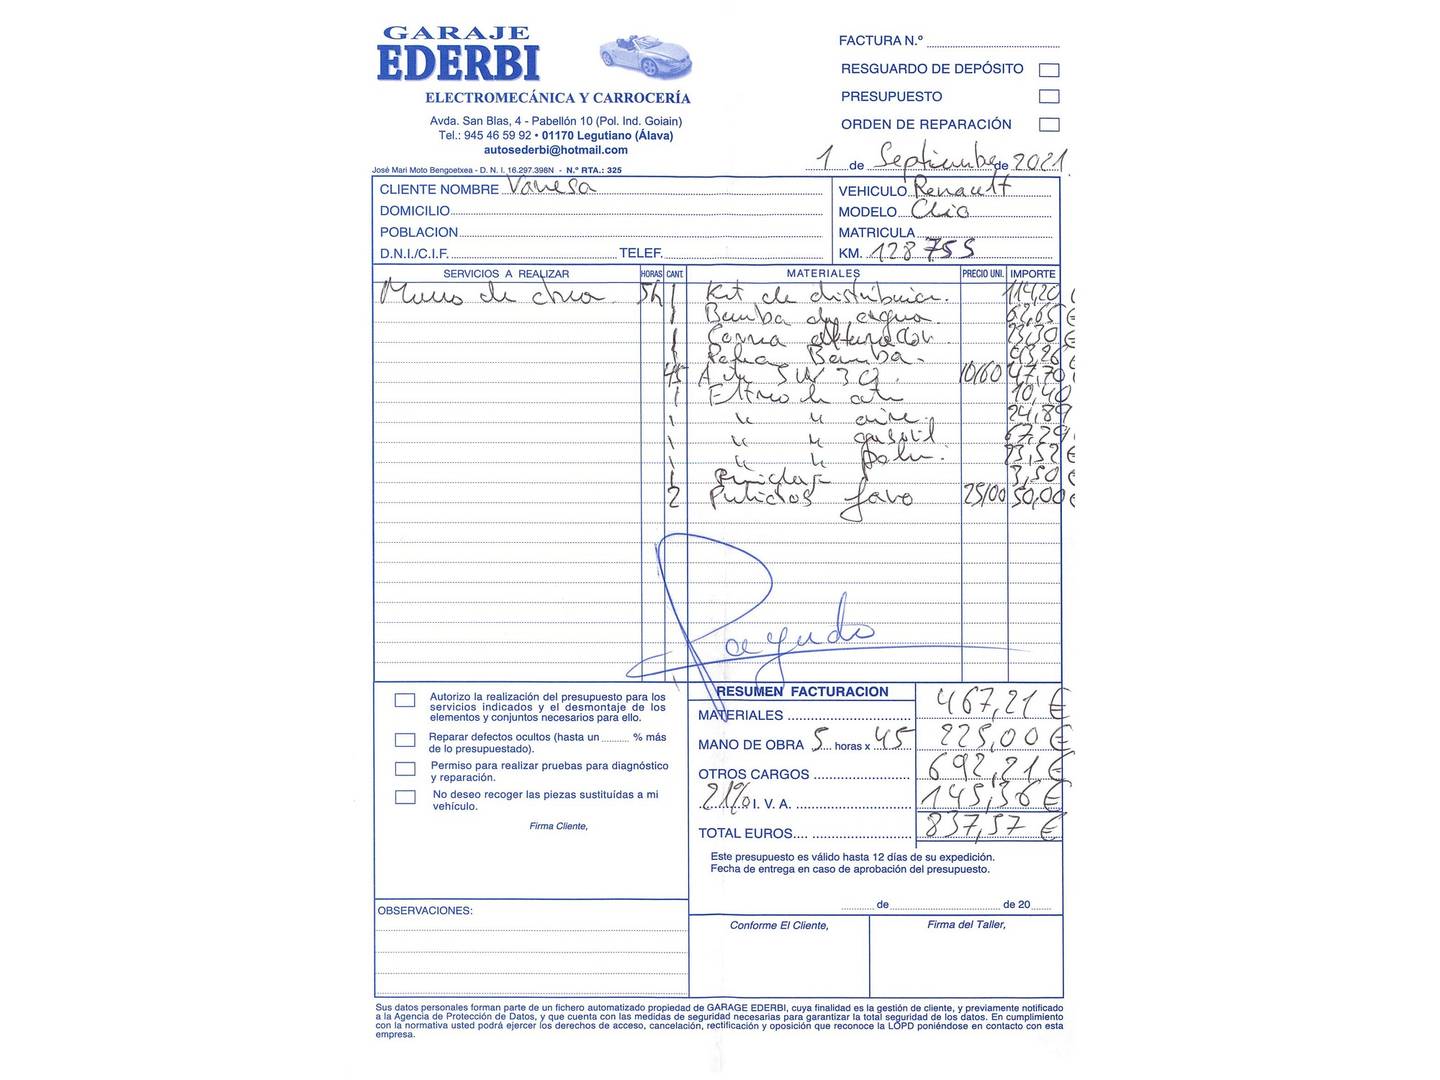 GARAJE
EDERBI
ELECTROMECÁNICA Y CARROCERÍA
Avda. San Blas, 4 - Pabellón 10 (Pol. Ind. Goiain)
Tel.: 945 46 59 92 • 01170 Legutiano (Álava)
autosederbi@hotmail.com
José Mari Moto Bengoetxea - D. N. I. 16.297.398N - N.º RTA.: 325
FACTURA N.º
RESGUARDO DE DEPÓSITO
PRESUPUESTO
ORDEN DE REPARACIÓN
1 de Septiembre de 2021
CLIENTE NOMBRE Vanesa
DOMICILIO
POBLACION
D.N.I./C.I.F. TELEF.
VEHICULO Renault
MODELO Clio
MATRICULA
KM. 128755
SERVICIOS A REALIZAR HORAS CANT. MATERIALES PRECIO UNI. IMPORTE
Mano de obra 5h 1 Kit de distribucion. 114,20 €
1 Bomba de agua. 62,65 €
1 Correa alternador. 23,30 €
1 Bomba.
5W30. 10,60 47,70 €
1 Filtro de 10,40
1 " " aire. 24,89
1 " " gasoil 67,29
1 " " 23,52 €
1 3,50 €
2 faro 25,00 50,00 €
Pagado
Autorizo la realización del presupuesto para los
servicios indicados y el desmontaje de los
elementos y conjuntos necesarios para ello.
Reparar defectos ocultos (hasta un ......... % más
de lo presupuestado).
Permiso para realizar pruebas para diagnóstico
y reparación.
No deseo recoger las piezas sustituídas a mi
vehículo.
Firma Cliente,
OBSERVACIONES:
RESUMEN FACTURACION
MATERIALES 467,21 €
MANO DE OBRA 5 horas x 45 225,00 €
OTROS CARGOS 692,21 €
21% I. V. A. 145,36 €
TOTAL EUROS 837,57 €
Este presupuesto es válido hasta 12 días de su expedición.
Fecha de entrega en caso de aprobación del presupuesto.
de de 20
Conforme El Cliente, Firma del Taller,
Sus datos personales forman parte de un fichero automatizado propiedad de GARAGE EDERBI, cuya finalidad es la gestión de cliente, y previamente notificado
a la Agencia de Protección de Datos, y que cuenta con las medidas de seguridad necesarias para garantizar la total seguridad de los datos. En cumplimiento
con la normativa usted podrá ejercer los derechos de acceso, cancelación, rectificación y oposición que reconoce la LOPD poniéndose en contacto con esta
empresa.